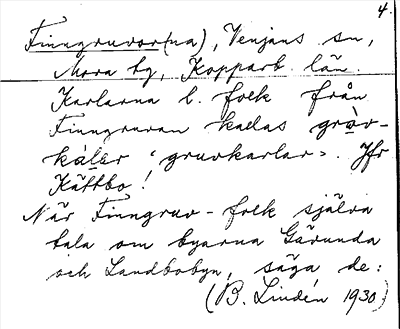 4.
Finngruvor(na), Venjans sn,
Mora tg, Kopparb. län.
Karlarna l. folk från
Finngruvan kallas gròv-
kàlar 'gruvkarlar'. Jfr
Kättbo!
När Finngruv-folk själva
tala om byarna Gävunda
och Landbobyn, säga de:
(B. Lindén 1930)